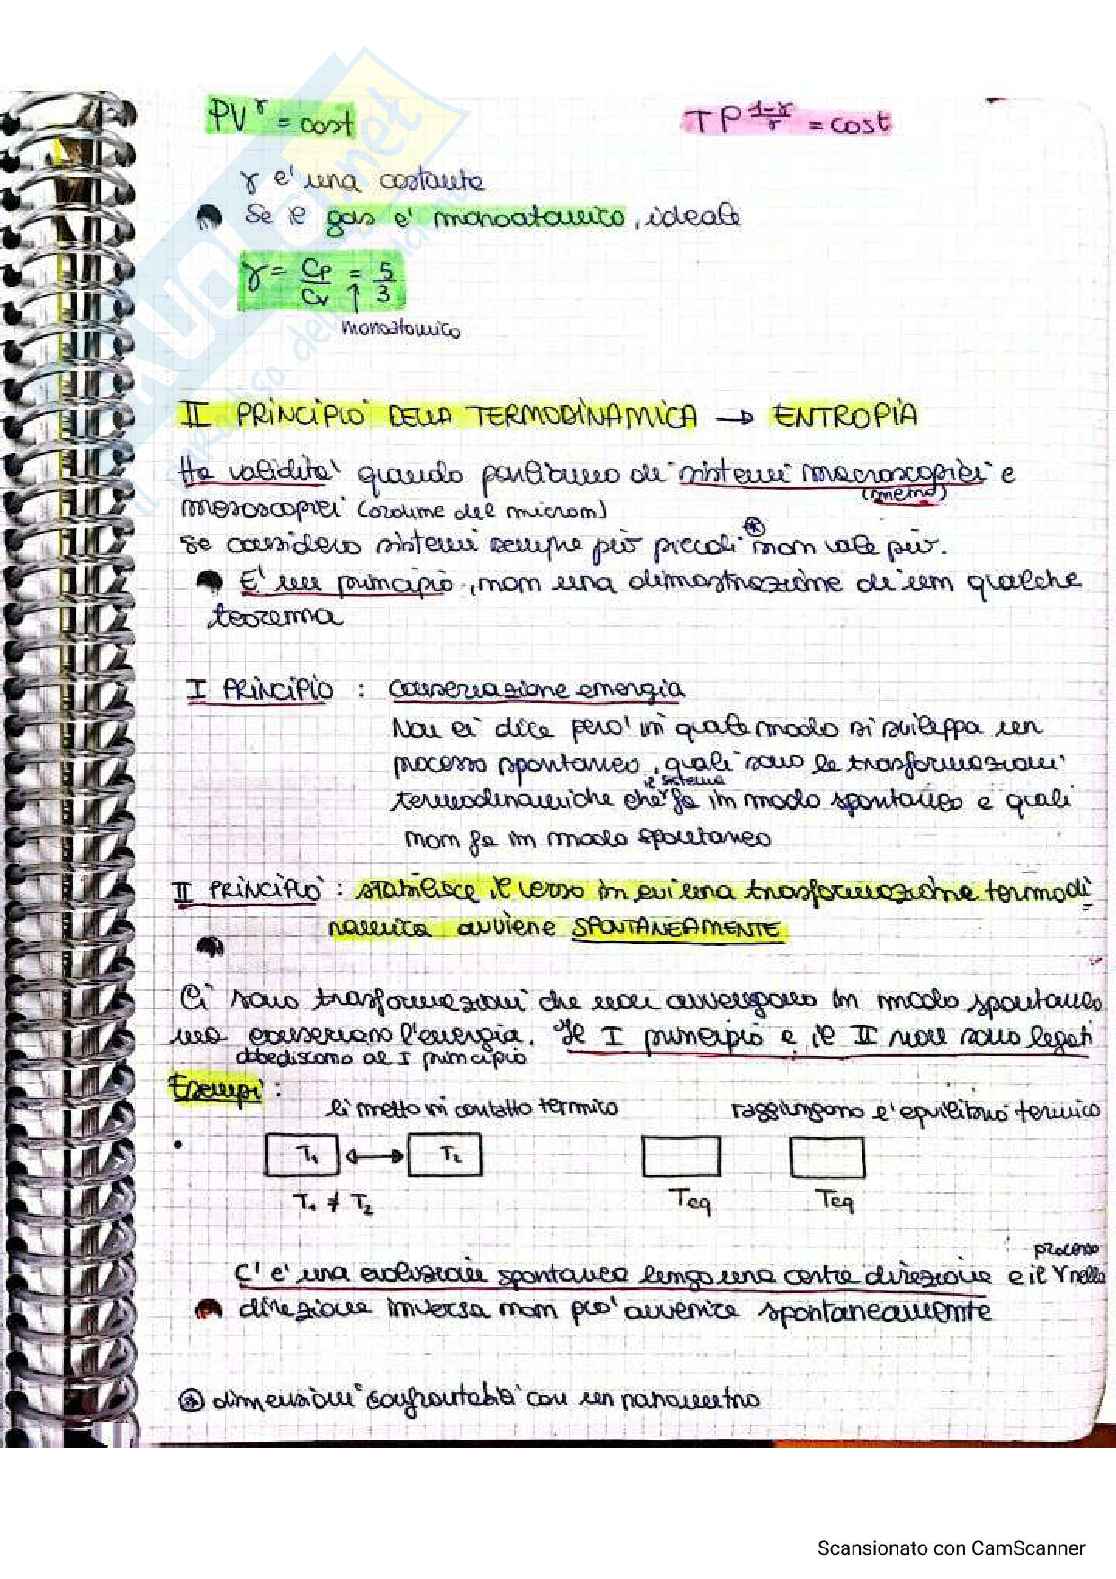 PV^γ = cost
TP^(1-γ)/γ = cost
γ e' una costante
Se il gas e' monoatomico, ideale
γ = Cp/Cv = 5/3
↑
monoatomico
II PRINCIPIO DELLA TERMODINAMICA → ENTROPIA
Ha validita' quando parliamo di sistemi macroscopici e
(metro)
mesoscopici (ordine del microm)
Se considero sistemi sempre più piccoli ⊛ non vale più.
E' un principio, non una dimostrazione di un qualche
teorema
I PRINCIPIO : conservazione energia
Non ci dice pero' in quale modo si sviluppa un
processo spontaneo, quali sono le trasformazioni
il sistema
termodinamiche che fa in modo spontaneo e quali
non fa in modo spontaneo
II PRINCIPIO : stabilisce il verso in cui una trasformazione termodi
namica avviene SPONTANEAMENTE
Ci sono trasformazioni che non avvengono in modo spontaneo
ma conservano l'energia. Il I principio e il II non sono legati
obbediscono al I principio
Esempi :
li metto in contatto termico
raggiungono l'equilibrio termico
• T₁ ↔ T₂
T₁ ≠ T₂
Teq Teq
processo
C'e' una evoluzione spontanea lungo una certa direzione e il nella
direzione inversa non puo' avvenire spontaneamente
⊛ dimensioni confrontabili con un nanometro
Scansionato con CamScanner